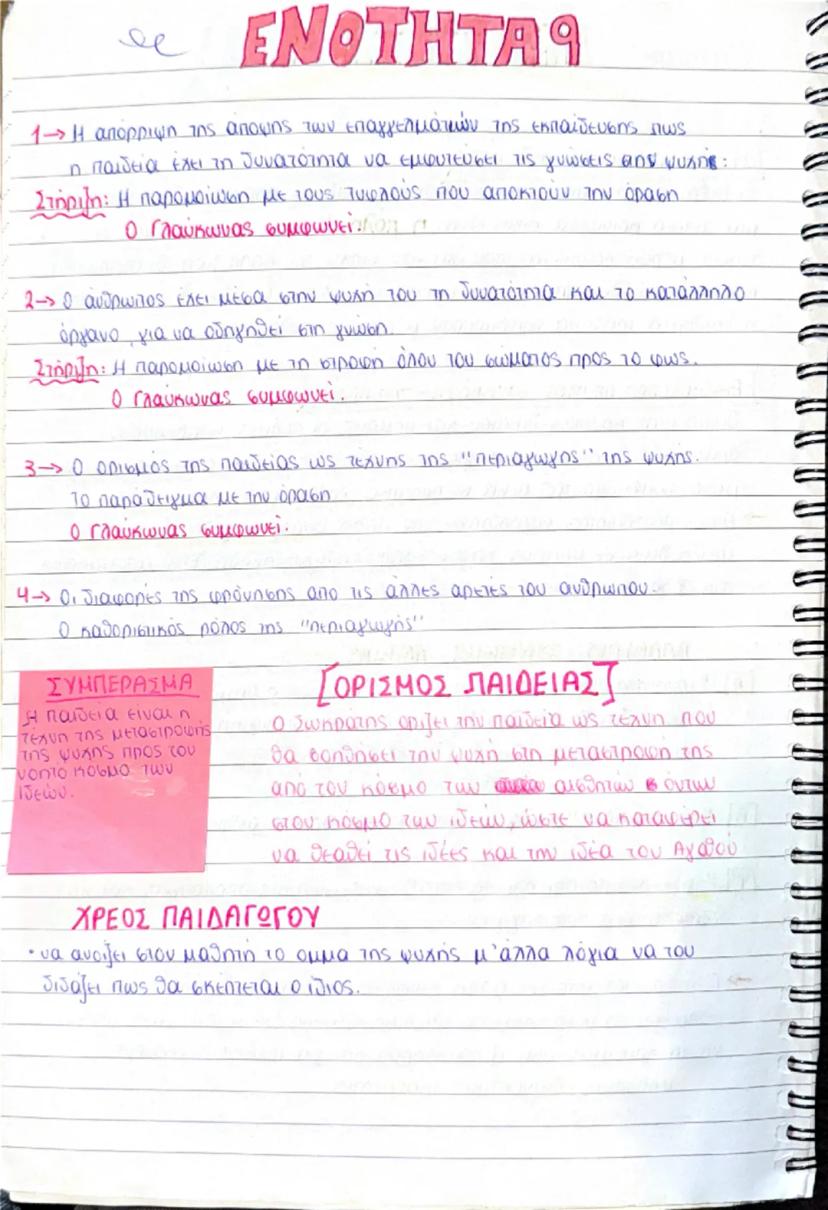 ΕΝΟΤΗΤΑ 9
1→ Η απόρριψη της άποψης των επαγγελματιών της εκπαίδευσης πως
η παιδεία έχει τη δυνατότητα να εμφυτεύσει τις γνώσεις στην ψυχή:
Στήριξη: Η παρομοίωση με τους τυφλούς που αποκτούν την όραση
Ο Γλαύκωνας συμφωνεί.
2→ Ο άνθρωπος έχει μέσα στην ψυχή του τη δυνατότητα και το κατάλληλο
όργανο, για να οδηγηθεί στη γνώση
Στήριξη: Η παρομοίωση με τη στροφή όλου του σώματος προς το φως.
Ο Γλαύκωνας συμφωνεί.
3→ Ο ορισμός της παιδείας ως τέχνης της "περιαγωγής" της ψυχής.
Το παράδειγμα με την όραση
Ο Γλαύκωνας συμφωνεί.
4→ Οι διαφορές της φρόνησης από τις άλλες αρετές του ανθρώπου.
Ο καθοριστικός ρόλος της "περιαγωγής"
ΣΥΜΠΕΡΑΣΜΑ
Η παιδεία είναι η
τέχνη της μεταστροφής
της ψυχής προς τον
νοητό κόσμο των
ιδεών.
[ΟΡΙΣΜΟΣ ΠΑΙΔΕΙΑΣ]
Ο Σωκράτης ορίζει την παιδεία ως τέχνη που
θα βοηθήσει την ψυχή στη μεταστροφή της
από τον κόσμο των αισθητών όντων
στον κόσμο των ιδεών, ώστε να καταφέρει
να θεαθεί τις ιδέες και την ιδέα του Αγαθού
ΧΡΕΟΣ ΠΑΙΔΑΓΩΓΟΥ
• να ανοίξει στον μαθητή το όμμα της ψυχής μ' άλλα λόγια να του
διδάξει πως θα σκέπτεται ο ίδιος.